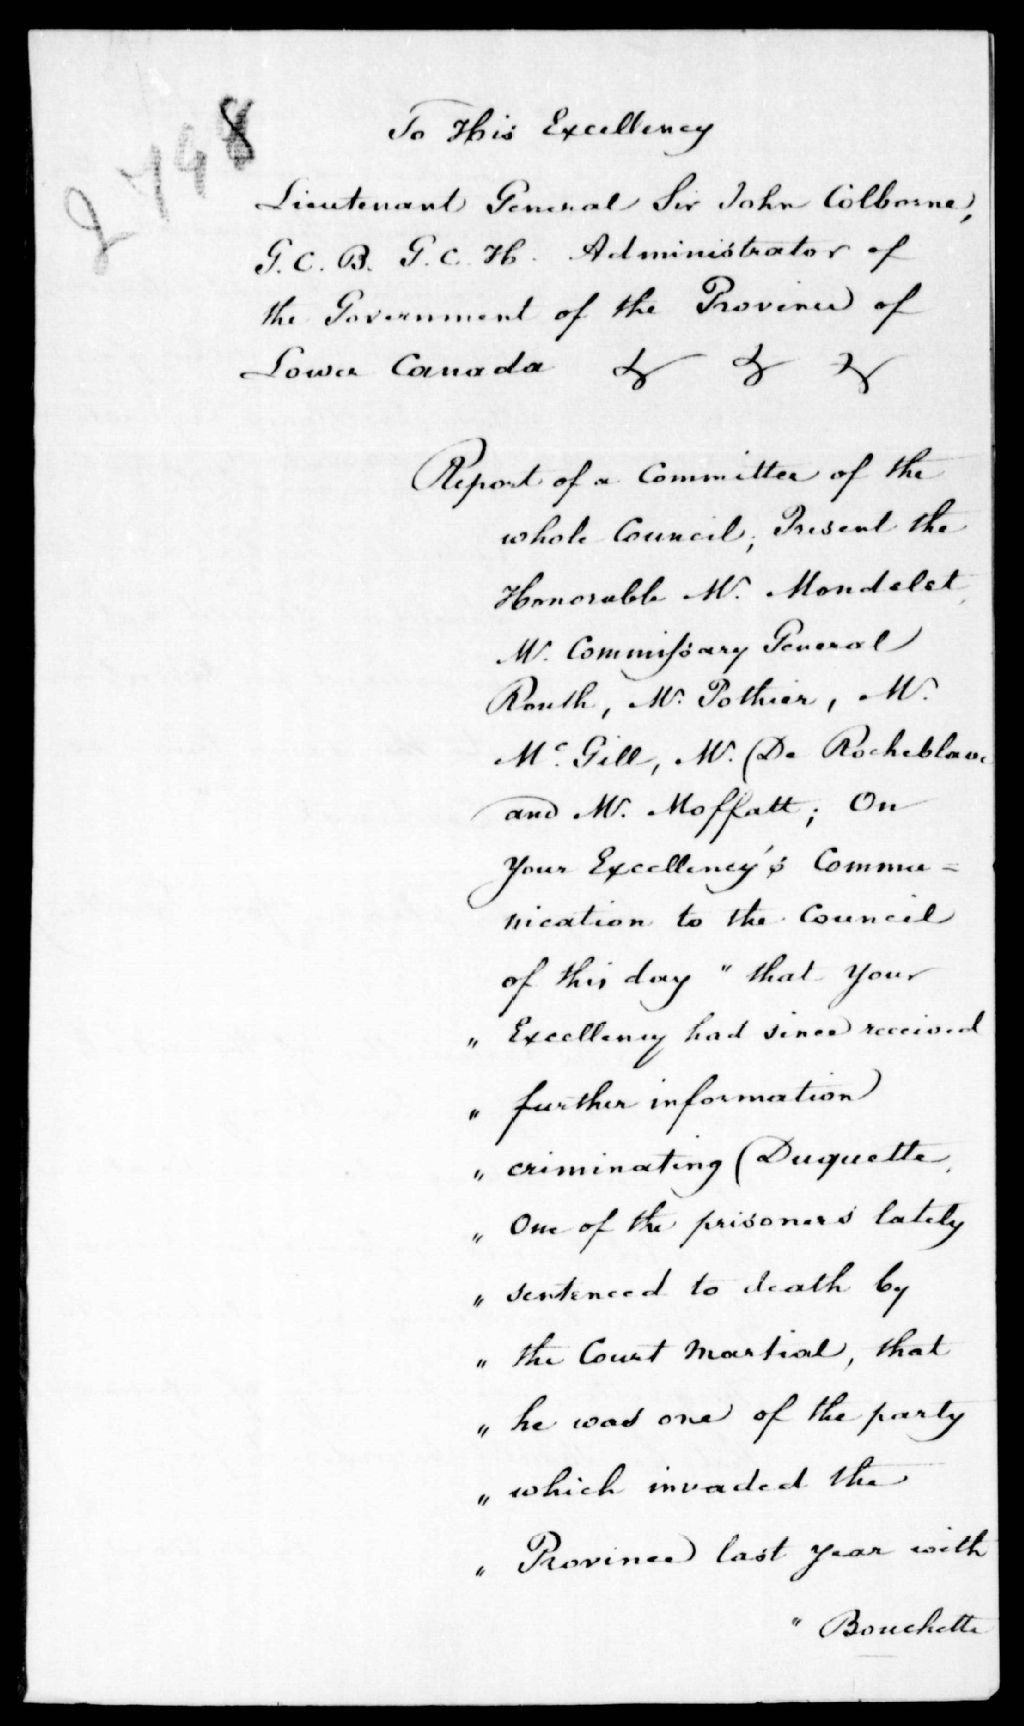 2798
To His Excellency
Lieutenant General Sir John Colborne,
G.C.B. G.C.H. Administrator of
the Government of the Province of
Lower Canada & & &
Report of a Committee of the
whole Council; Present the
Honorable Mr. Mondelet,
Mr. Commissary General
Routh, Mr. Pothier, Mr.
Mc. Gill, Mr. De Rocheblave
and Mr. Moffatt; On
Your Excellency's Commu=
nication to the Council
of this day "that Your
" Excellency had since received
" further information
" criminating Duquette,
" One of the prisoners lately
" sentenced to death by
" the Court Martial, that
" he was one of the party
" which invaded the
" Province last year with
" Bouchette